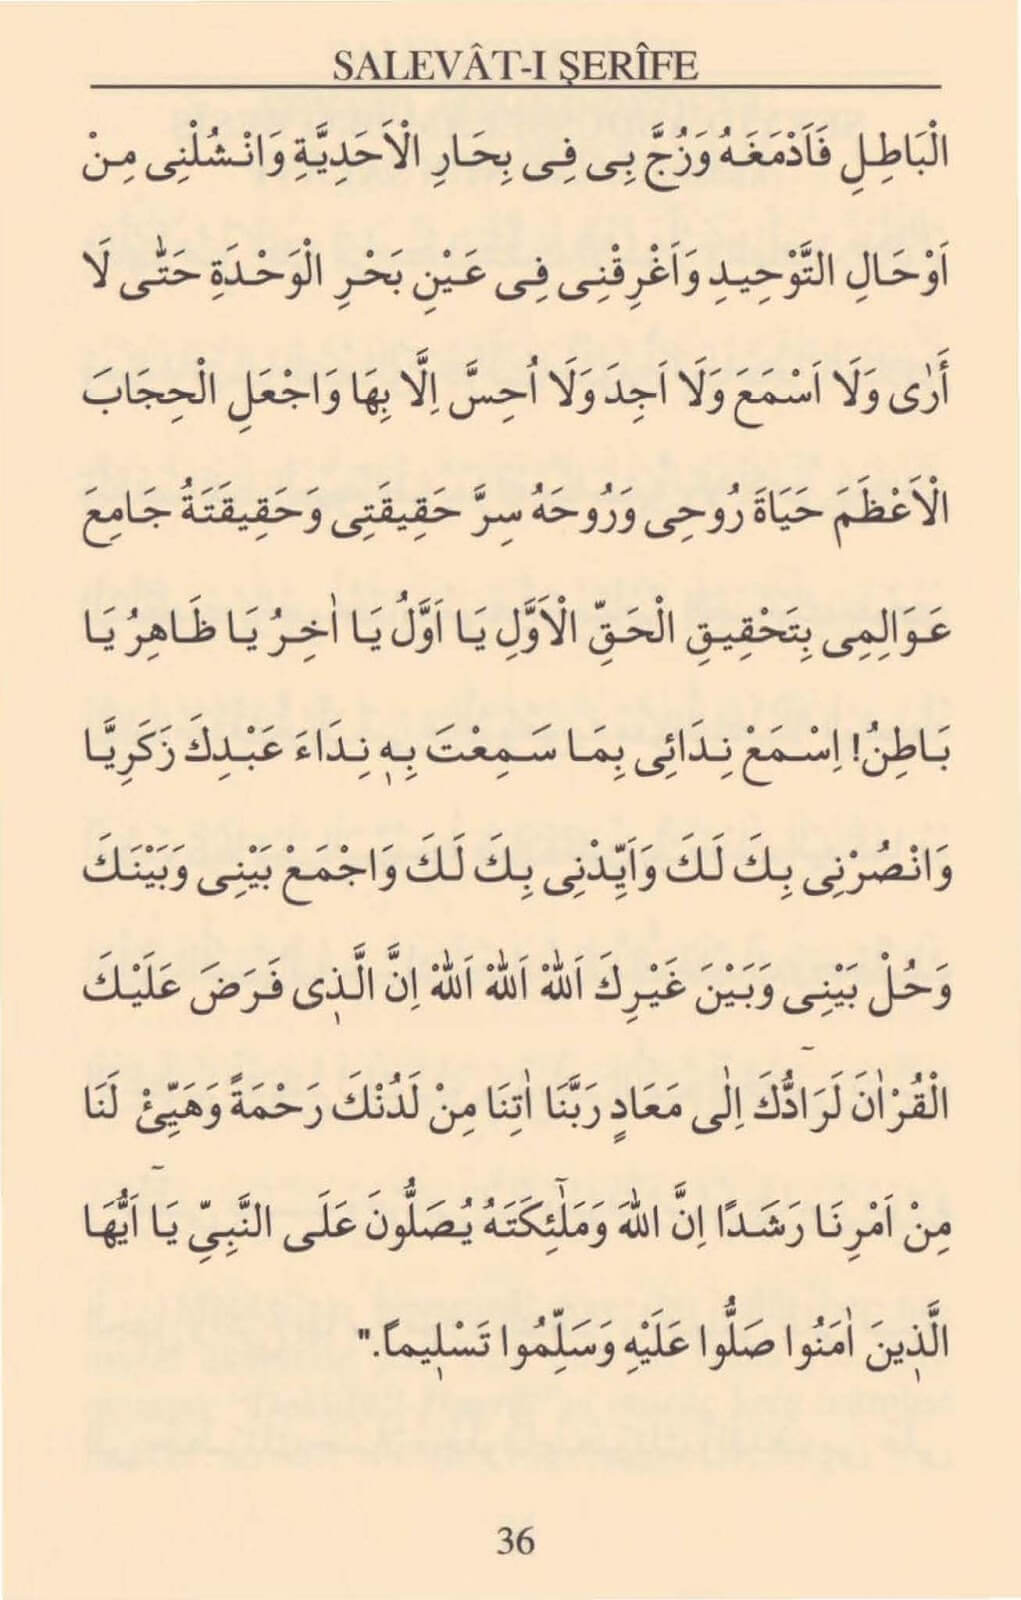 SALEVÂT-I ŞERÎFE
الْبَاطِلِ فَاَدْمَغَهُ وَزُجَّ بِى فِى بِحَارِ الْاَحَدِيَّةِ وَانْشُلْنِى مِنْ
اَوْحَالِ التَّوْحِيدِ وَاَغْرِقْنِى فِى عَيْنِ بَحْرِ الْوَحْدَةِ حَتّٰى لَا
أَرٰى وَلَا اَسْمَعَ وَلَا اَجِدَ وَلَا اُحِسَّ اِلَّا بِهَا وَاجْعَلِ الْحِجَابَ
الْاَعْظَمَ حَيَاةَ رُوحِى وَرُوحَهُ سِرَّ حَقِيقَتِى وَحَقِيقَتَهُ جَامِعَ
عَوَالِمِى بِتَحْقِيقِ الْحَقِّ الْاَوَّلِ يَا اَوَّلُ يَا اٰخِرُ يَا ظَاهِرُ يَا
بَاطِنُ! اِسْمَعْ نِدَائِى بِمَا سَمِعْتَ بِهٖ نِدَاءَ عَبْدِكَ زَكَرِيَّا
وَانْصُرْنِى بِكَ لَكَ وَاَيِّدْنِى بِكَ لَكَ وَاجْمَعْ بَيْنِى وَبَيْنَكَ
وَحُلْ بَيْنِى وَبَيْنَ غَيْرِكَ اَللّٰهْ اَللّٰهْ اَللّٰهْ اِنَّ الَّذٖى فَرَضَ عَلَيْكَ
الْقُرْاٰنَ لَرَادُّكَ اِلٰى مَعَادٍ رَبَّنَا اٰتِنَا مِنْ لَدُنْكَ رَحْمَةً وَهَيِّئْ لَنَا
مِنْ اَمْرِنَا رَشَدًا اِنَّ اللّٰهَ وَمَلٰٓئِكَتَهُ يُصَلُّونَ عَلَى النَّبِىِّ يَا اَيُّهَا
الَّذٖينَ اٰمَنُوا صَلُّوا عَلَيْهِ وَسَلِّمُوا تَسْلٖيماً."
36